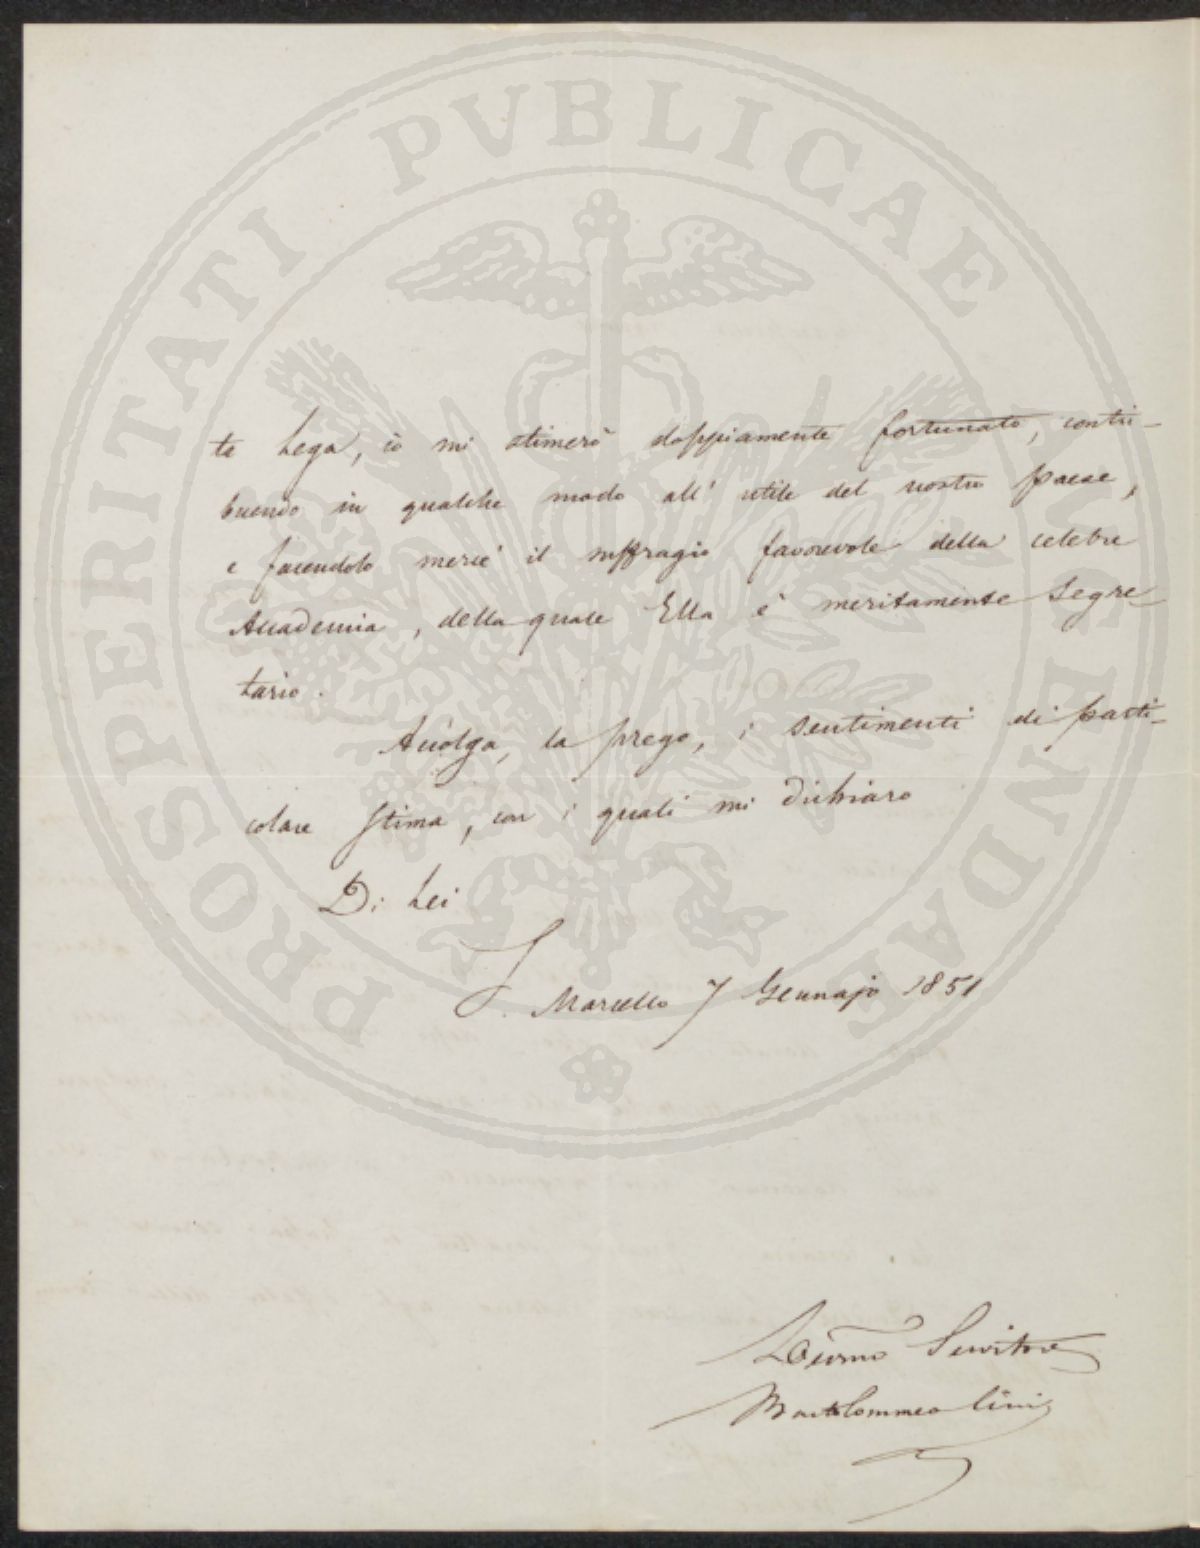 PROSPERITATI PUBLICAE AUGENDAE
te Lega, io mi stimerò doppiamente fortunato, contri-
buendo in qualche modo all' utile del nostro paese,
e facendolo mercè il suffragio favorevole della celebre
Accademia, della quale Ella è meritamente Segre-
tario.
Accolga, la prego, i sentimenti di parti-
colare stima, con i quali mi dichiaro
Di Lei
S. Marcello 7 Gennajo 1851
Servitore
Bartolommeo Cini